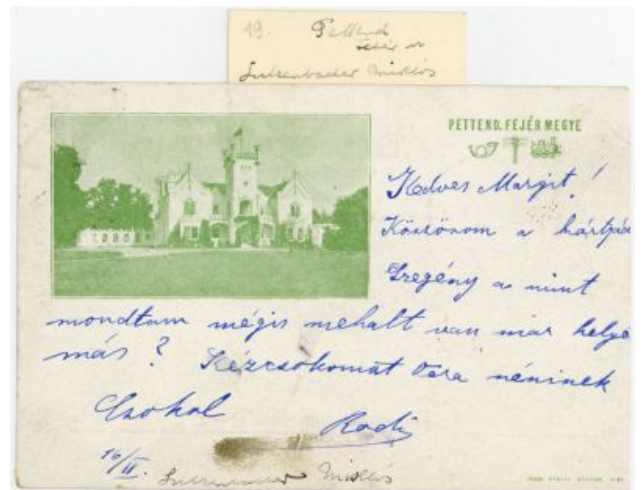 19. Pettend
Fejér m
Lutzenbacher Miklós
PETTEND, FEJÉR MEGYE
Kedves Margit!
Köszönom a kártyá
Szegény a mint
mondtam mégis mehalt van már helye
más? Kézcsokomat Vera néninek
Csokol
Rudi
16/II.
Lutzenbacher Miklós